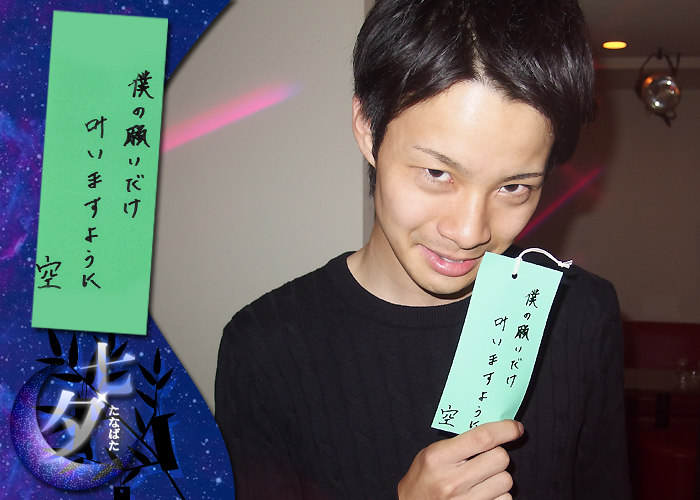 僕の願いだけ
叶いますように
空
七夕
たなばた
僕の願いだけ
叶いますように
空